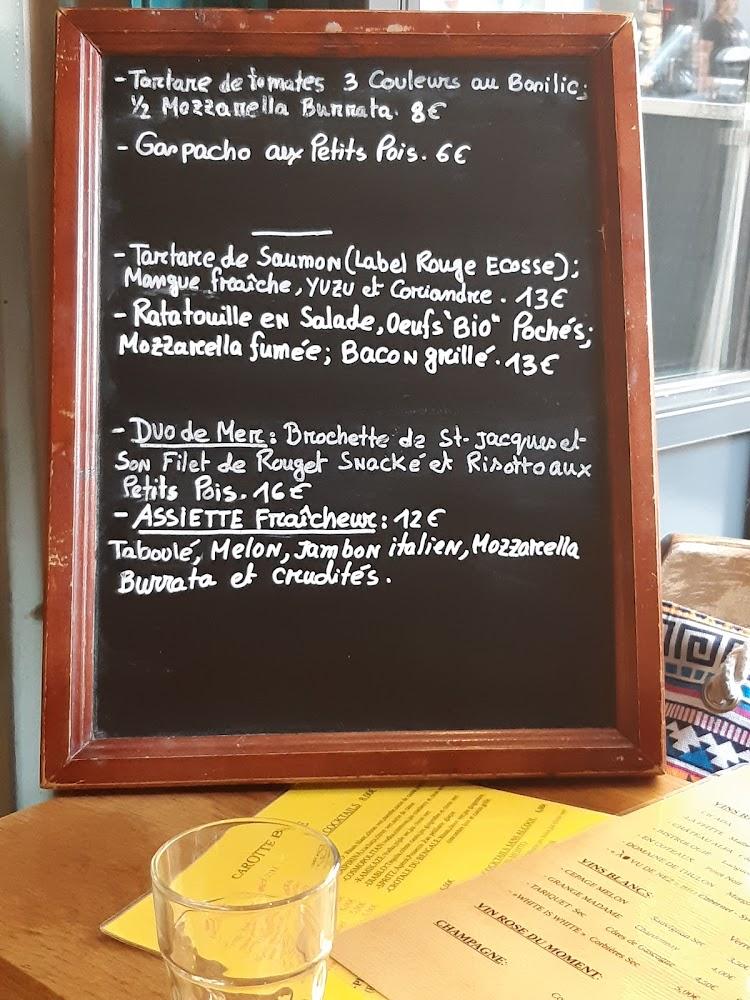 - Tartare de tomates 3 Couleurs au Basilic;
½ Mozzarella Burrata. 8€
- Gaspacho aux Petits Pois. 6€
- Tartare de Saumon (Label Rouge Ecosse);
Mangue fraîche, YUZU et Coriandre. 13€
- Ratatouille en Salade, Oeufs "Bio" Pochés;
Mozzarella fumée; Bacon grillé. 13€
- Duo de Mer: Brochette de St-Jacques et
Son Filet de Rouget Snacké et Risotto aux
Petits Pois. 16€
- ASSIETTE Fraîcheur: 12€
Taboulé, Melon, Jambon italien, Mozzarella
Burrata et Crudités.
CAROTTE
COCKTAILS 8,00€
COSMOPOLITAN
VINS BLANCS
- CEPAGE MELON
GRANGE MADAME
- TARIQUET Sec
- «WHITE IS WHITE» Corbières Sec
VIN ROSE DU MOMENT:
CHAMPAGNE:
- EN COTEAUX
DOMAINE DE THULON
Côtes de Gascogne
Sauvignon Sec